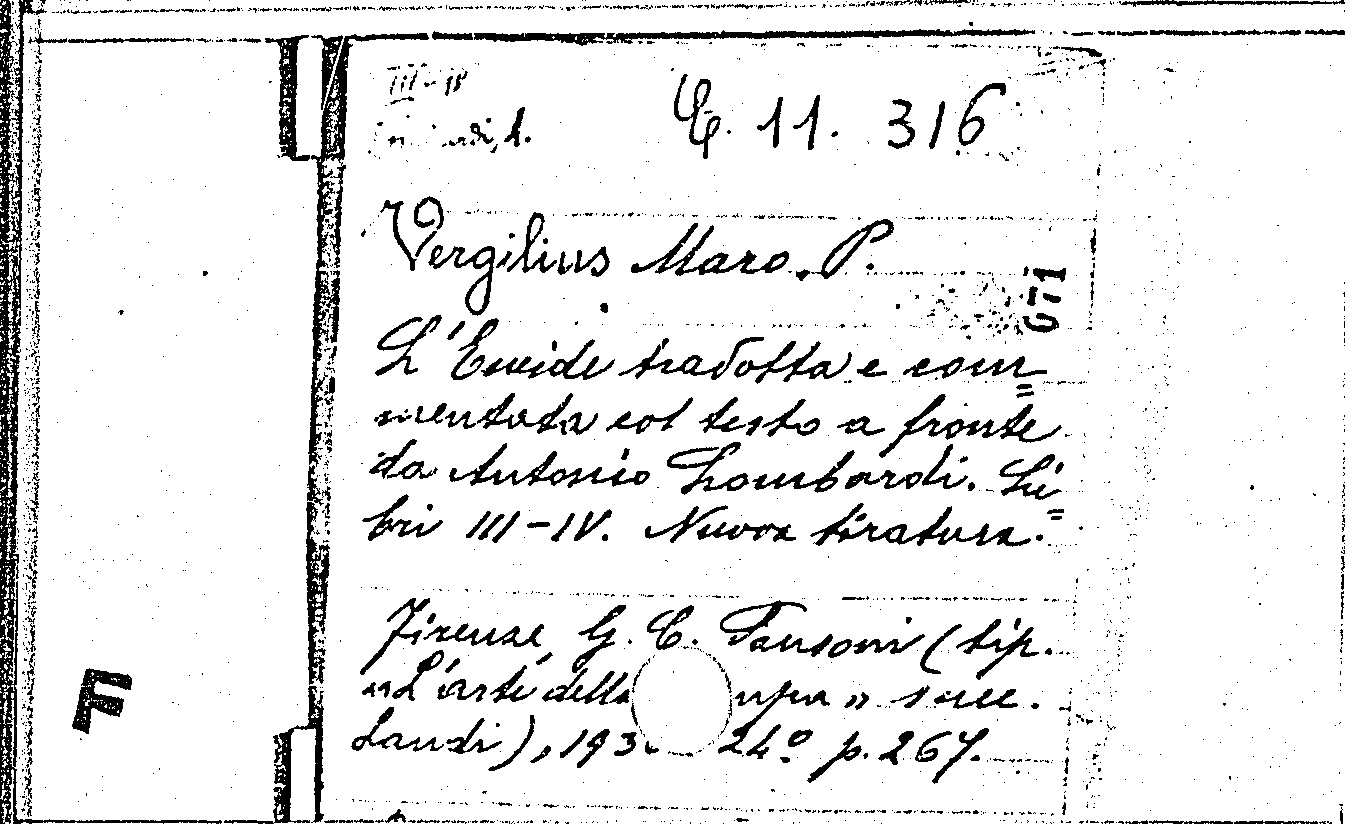 III-18
C. 11. 316
Vergilius Maro. P.
671
L'Eneide tradotta e com=
mentata col testo a fronte
da Antonio Lombardi. Li=
bri III-IV. Nuova tiratura.
Firenze, G. C. Sansoni (tip.
"L'arte della succ.
Landi), 24º p. 267.
F